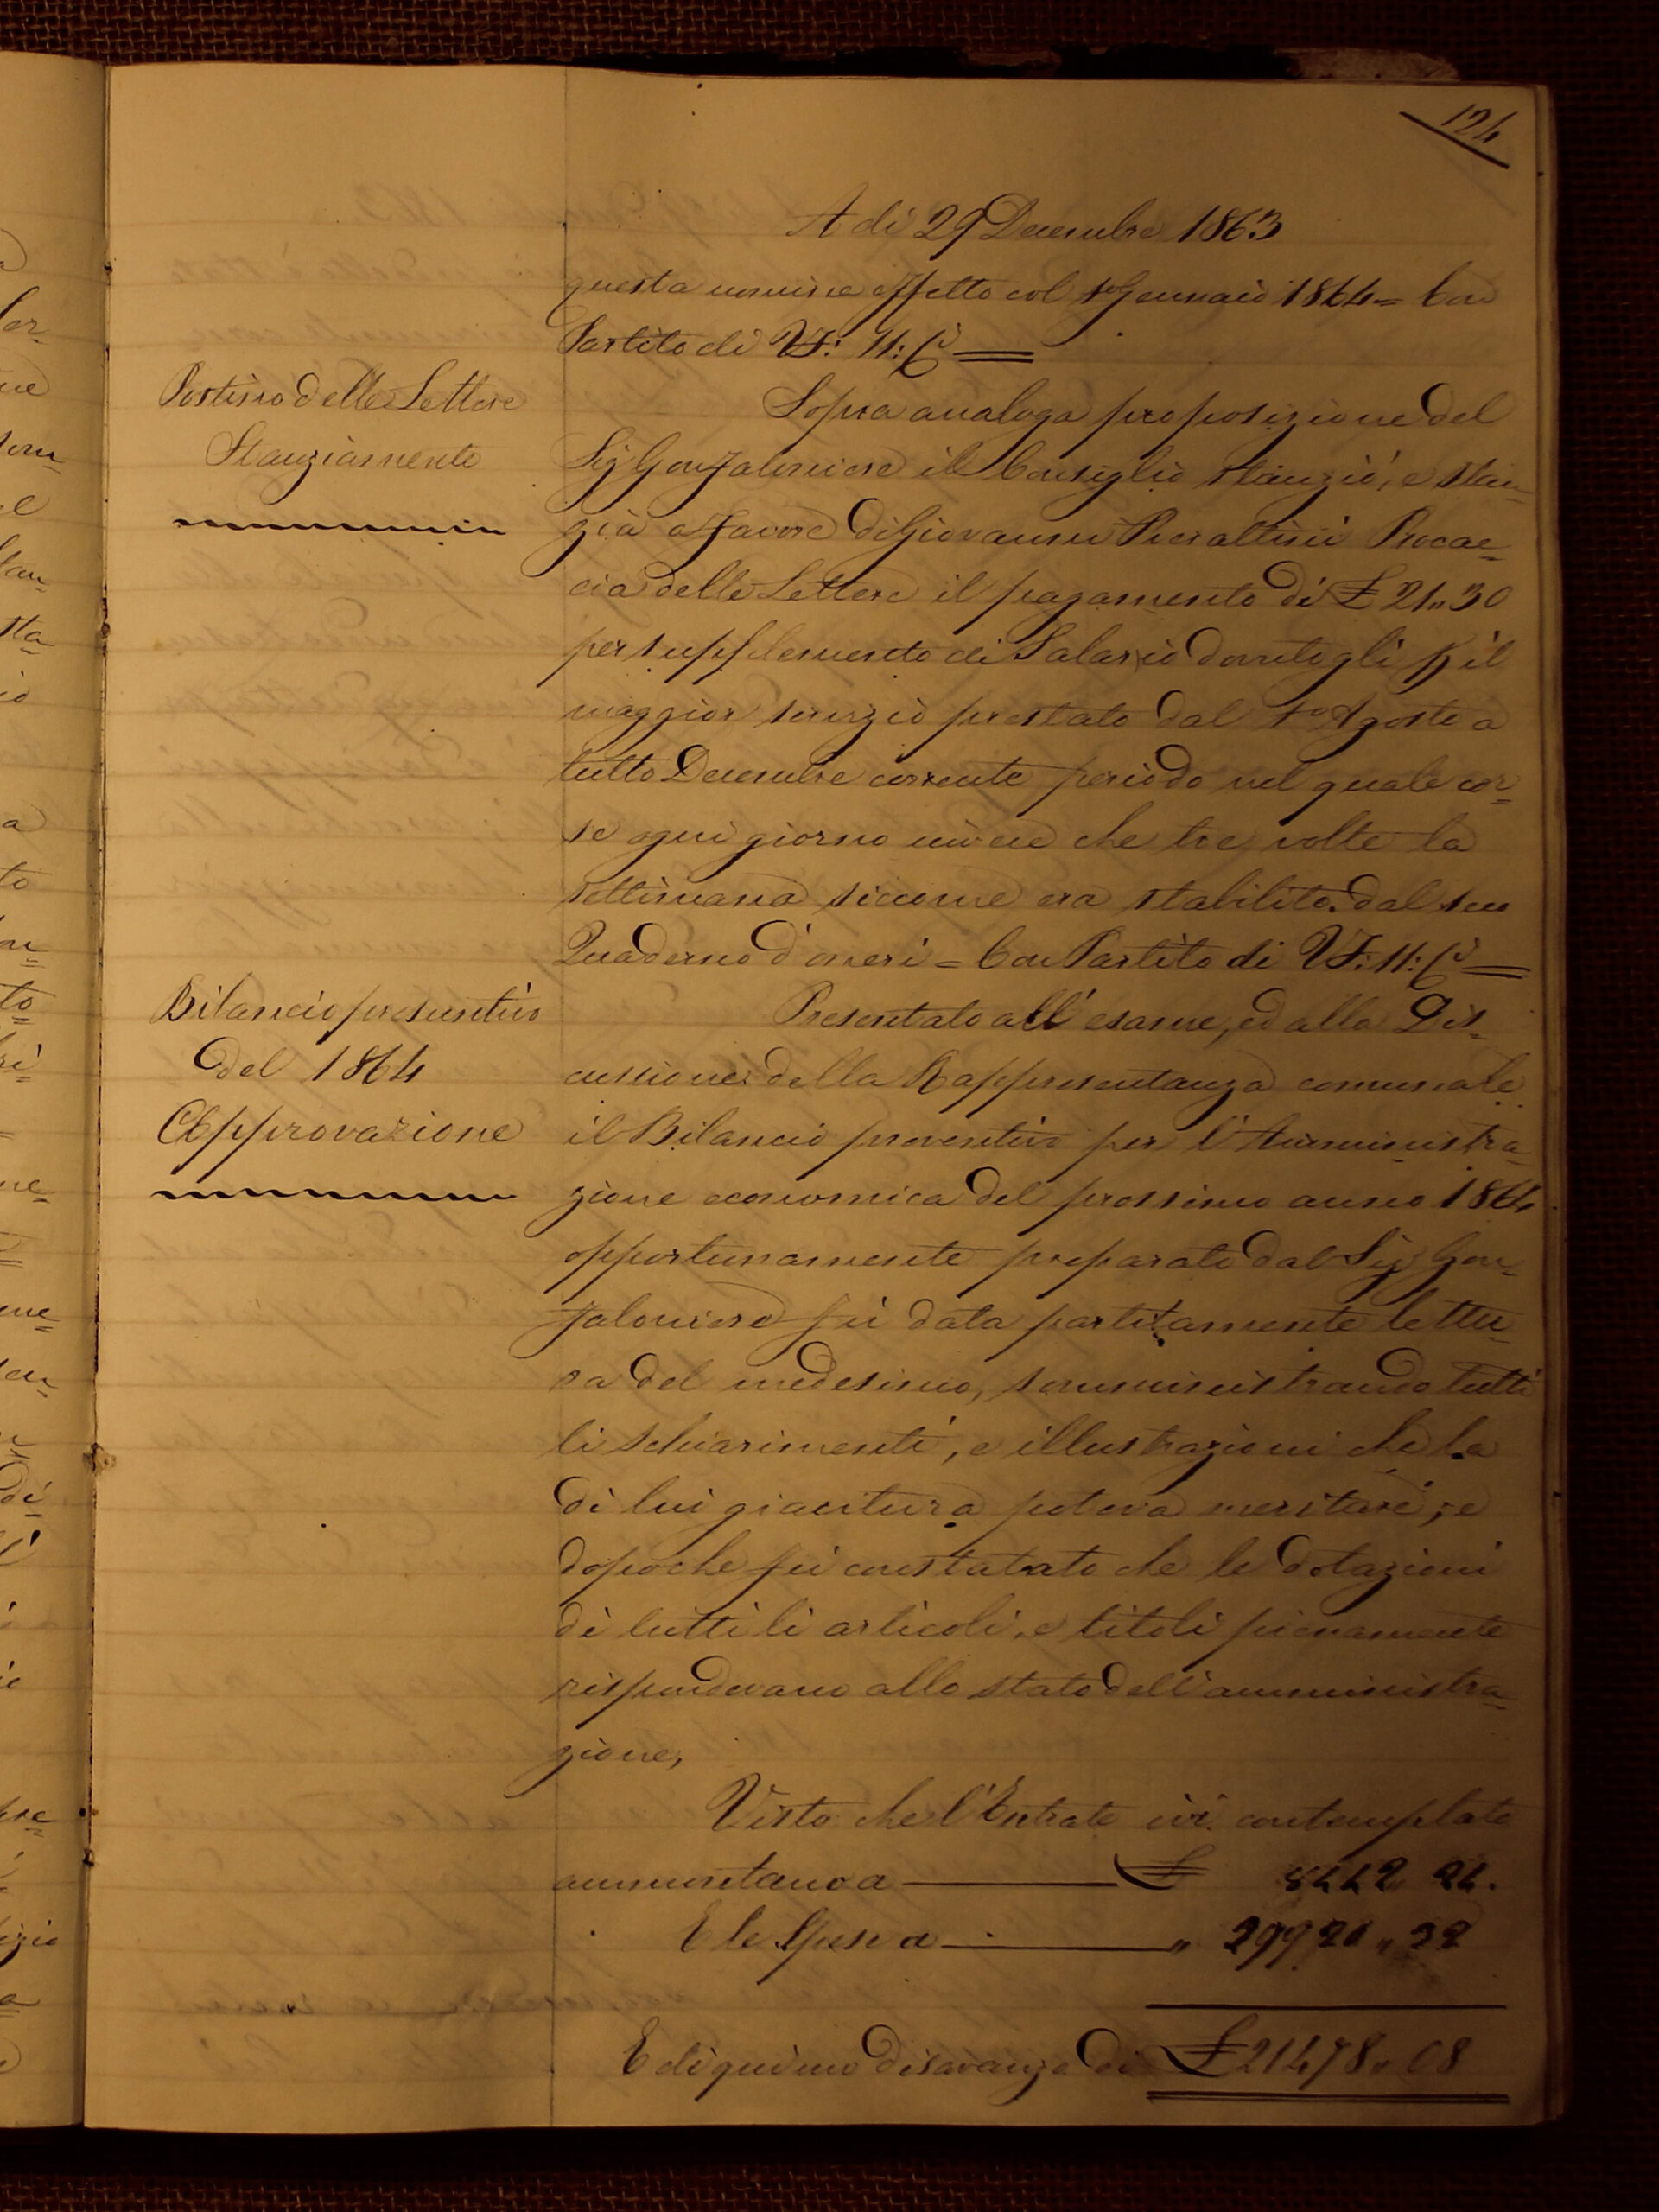 124
A di 29 Decembre 1863
questa nomina effetto col 1º Gennaio 1864 = Con
Partito di VF: 11: C
Postino delle Lettere
Stanziamento
Sopra analoga proposizione del
Sig Gonfaloniere il Consiglio stanziò, e stan=
zia a favore di Giovanni Pierattini Procac=
cia delle Lettere il pagamento di £ 21 " 30
per supplemento di Salario dovutogli p il
maggior servizio prestato dal 1º Agosto a
tutto Decembre corrente periodo nel quale cor=
se ogni giorno invece che tre volte la
settimana siccome era stabilito dal suo
Quaderno d'oneri = Con Partito di VF: 11: C
Bilancio presuntivo
del 1864
Approvazione
Presentato all'esame, ed alla Dis=
cussione della Rappresentanza comunale
il Bilancio preventivo per l'Amministra=
zione economica del prossimo anno 1864
opportunamente preparato dal Sig Gon=
faloniere fù data partitamente lettu=
ra del medesimo, somministrando tutti
li schiarimenti, e illustrazioni che la
di lui giacitura poteva meritare, e
dopoche fù constatato che le dotazioni
di tutti li articoli, e titoli pienamente
rispondevano allo stato dell'amministra=
zione,
Visto che l'Entrate ivi contemplate
ammontano a £ 8442 24.
E le Spese a " 29920 " 32
E di qui uno disavanzo di £ 21478 " 08